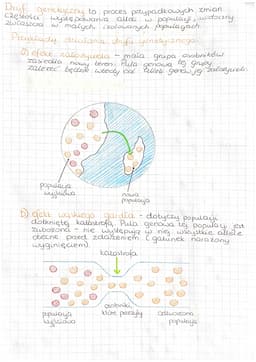 Dryf genetyczny to proces przypadkowych zmian
częstości występowania alleli w populacji, widoczny
zwłaszcza w małych izolowanych populacjach.
Przykłady działania dryfu genetycznego:
a) efekt założyciela - mała grupa osobników
zasiedla nowy teren. Pula genowa tej grupy
zależeć będzie wtedy od puli genowej założycieli.
populacja
wyjściowa
nowa
populacja
b) efekt wąskiego gardła - dotyczy populacji
dotkniętej katastrofą. Pula genowa tej populacji jest
zubożona - nie występują w niej wszystkie allele
obecne przed zdarzeniem (gatunek narażony
wyginięciem).
katastrofa
populacja
wyjściowa
osobniki,
które przeżyły
odtworzona
populacja